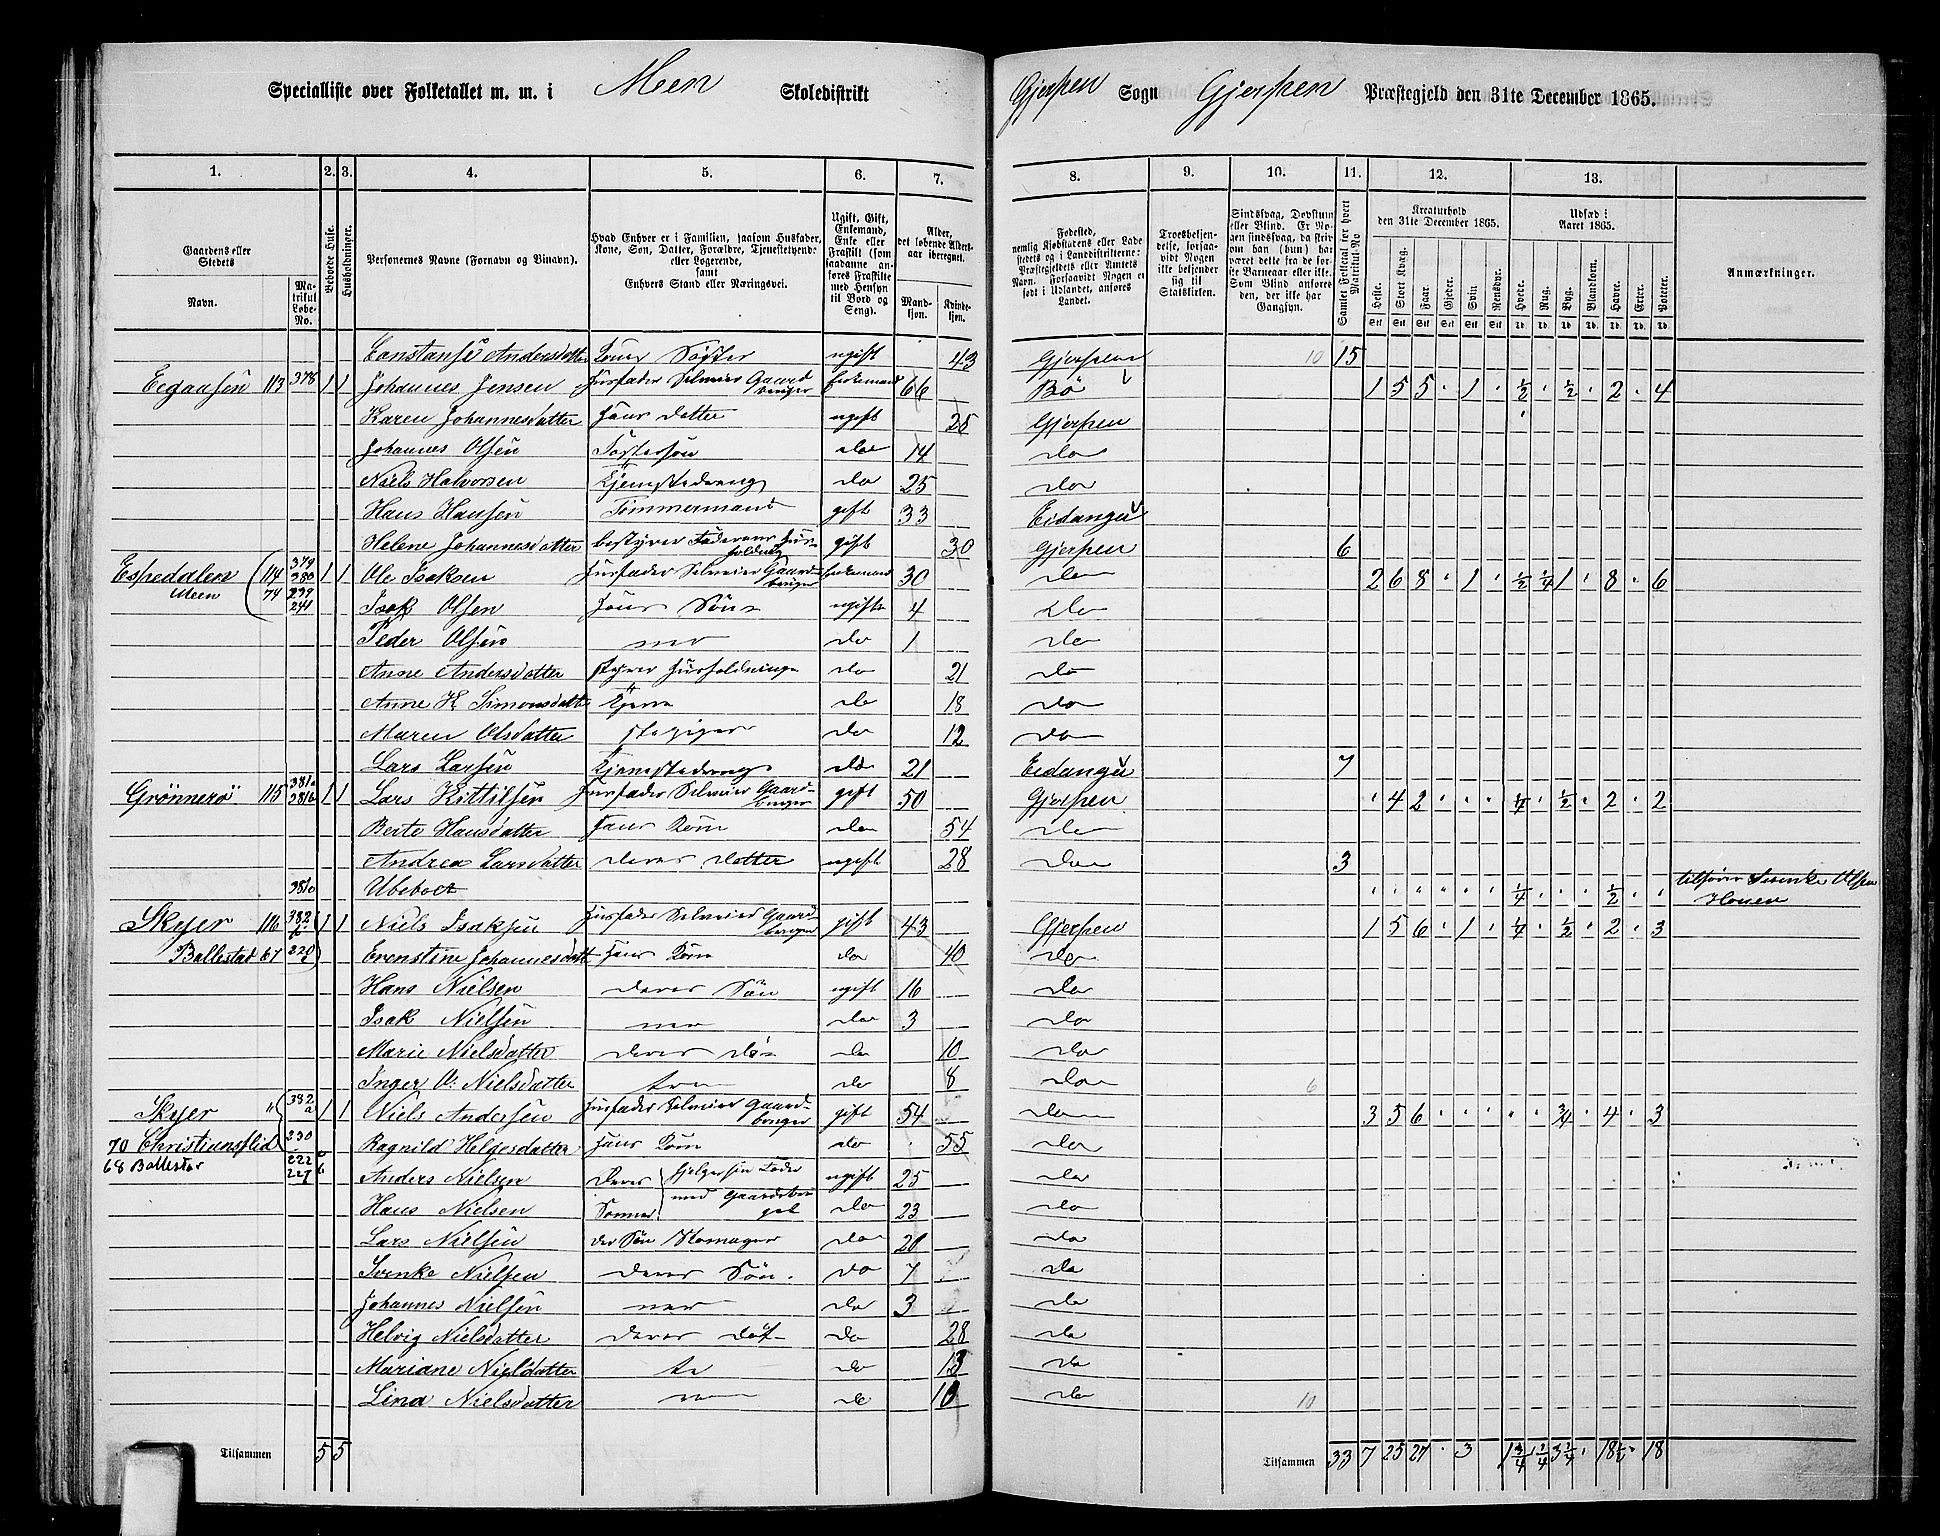 Specialliste over Folketallet m. m. i Meen Skoledistrikt Gjerpen Sogn Gjerpen Præstegjeld den 31te December 1865.
1. 2. 3. 4. 5. 6. 7. 8. 9. 10. 11. 12. 13.
Gaardens eller Stedets
Navn.
Matrikul Løbe-No.
Beboede Huse.
Husholdninger.
Personernes Navne (Fornavn og Binavn).
Hvad Enhver er i Familien, saasom Husfader, Kone, Søn, Datter, Forældre, Tjenestetyende eller Logerende, samt Enhvers Stand eller Næringsvei.
Ugift, Gift, Enkemand, Enke eller Fraskilt (som saadanne anføres Fraskilte med Hensyn til Bord og Seng).
Alder, det løbende Alders-aar iberegnet.
Mand-kjøn. Kvinde-kjøn.
Fødested, nemlig Kjøbstadens eller Ladestedets og i Landdistrikterne: Præstegjeldets eller Annexets Navn. Forsaavidt Nogen er født i Udlandet, anføres Landet.
Troesbekjendelse, forsaavidt Nogen ikke bekjender sig til Statskirken.
Sindssvag, Døvstum eller Blind.
Samlet Folketal for hvert Matrikul-No
Kreaturhold den 31te December 1865.
Heste. Stort Kvæg. Faar. Gjeder. Svin Rensdyr.
Udsæd i Aaret 1865.
Hvede. Rug. Byg. Blandkorn. Havre. Erter. Poteter.
Anmærkninger.
Constanse Andersdatter Søster ugift 43 Gjerpen 10 15
113 378 1 1 Johannes Jensen Husfader Selveier Gaardbruger Enkemand 66 Bø 1 5 5 . 1 . ½ . ½ . 2 . 4
Karen Johannesdatter Hans Datter ugift 25 Gjerpen
Johannes Olsen Fostersøn do 14 do
Niels Halvorsen Tjenestedreng do 25 do
Hans Hansen Tømmermand gift 33 Eidanger
Helene Johannesdatter bestyrer Faderens Husholdning gift 30 Gjerpen 6
Espedalen 114 379 380 1 1 Ole Isaksen Husfader Selveier Gaardbruger Enkemand 30 do 2 6 8 . 1 . ½ ¼ 1 . 8 . 6
Meen 74 239 241 Isak Olsen Hans Søn ugift 4 do
Peder Olsen do 1 do
Anne Andersdatter styrer Husholdningen do 21 do
Anne K Simonsdatter do 18 do
Maren Olsdatter do 12 do
Lars Larsen Tjenestedreng do 21 Eidanger 7
Grönnerö 115 381a 381b 1 1 Lars Kittilsen Husfader Selveier Gaardbruger gift 50 Gjerpen . 4 2 . . . ¼ . ½ . 2 . 2
Berte Hansdatter Hans Kone do 54 do
Andrea Larsdatter deres Datter ugift 28 do 3
381c Ubeboet ¼ ½ tilhører Svenke Olsen
Skyer 116 382 b 1 1 Niels Isaksen Husfader Selveier Gaardbruger gift 43 Gjerpen 1 5 6 . 1 . ¼ . ½ . 2 . 3
Ballestad 67 220 Erenstine Johannesdatt Hans Kone do 40 do
Hans Nielsen deres Søn ugift 16 do
Isak Nielsen do 3 do
Marie Nielsdatter deres do 10 do
Inger Nielsdatter do 8 do 6
Skyer " 382 a 1 1 Niels Andersen Husfader Selveier Gaardbruger gift 54 do 3 5 6 . . . . . ¾ . 4 . 3
70 Christiansflid 230 Ragnild Helgesdatter Hans Kone do 55 do
68 Ballestad 222 Anders Nielsen Deres Hjelper sin Fader ugift 25 do
Hans Nielsen Sønner med Gaardsbruget do 23 do
Lars Nielsen Søn Skomager do 20 do
Svenke Nielsen deres Søn do 7 do
Johannes Nielsen do 3 do
Helvig Nielsdatter deres do 28 do
Mariane Nielsdatter do 13 do
Lina Nielsdatter do 10 do 10
Tilsammen 5 5 Tilsammen 33 7 25 27 . 3 1¾ ¼ 3¼ . 18½ . 18